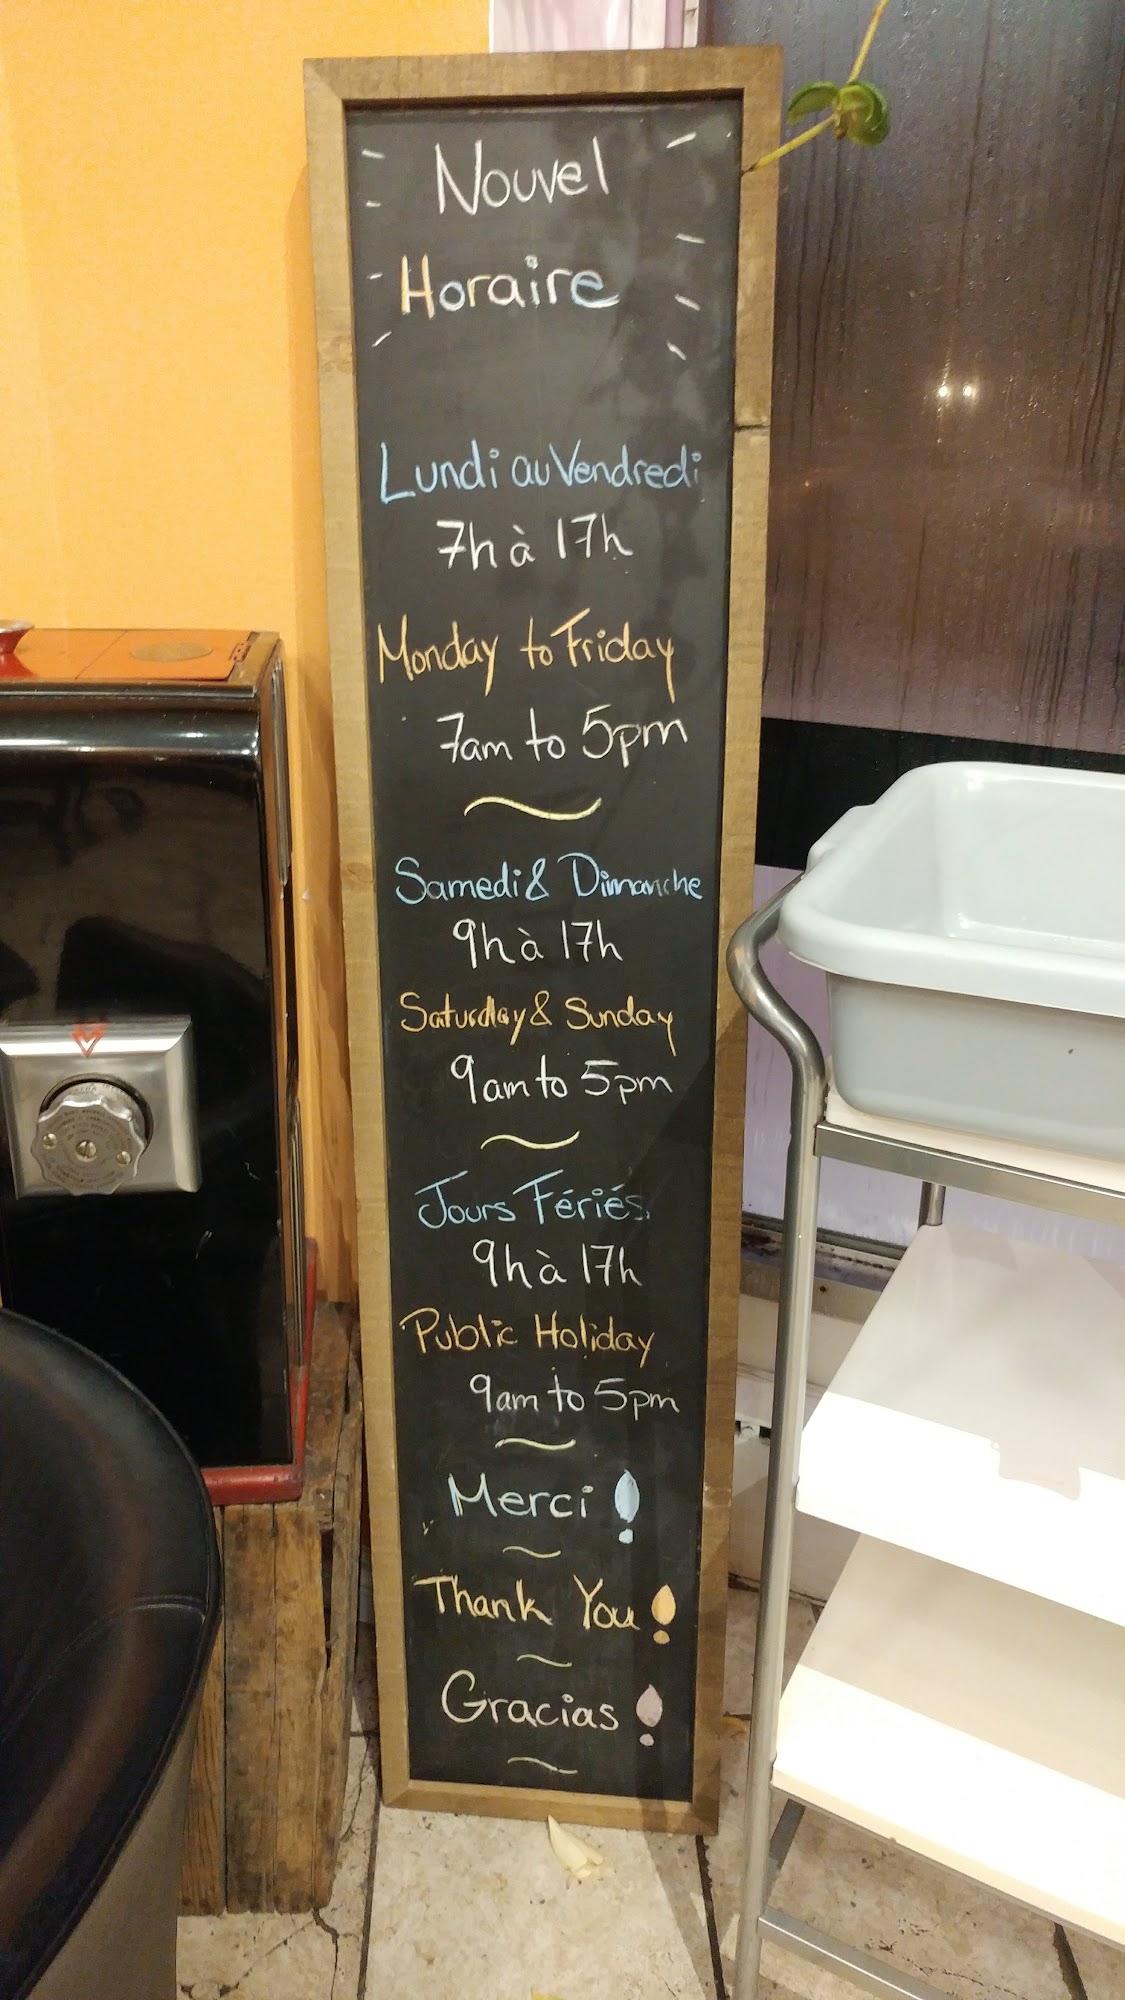 Nouvel
Horaire
Lundi au Vendredi
7h à 17h
Monday to Friday
7am to 5pm
Samedi & Dimanche
9h à 17h
Saturday & Sunday
9am to 5pm
Jours Fériés
9h à 17h
Public Holiday
9am to 5pm
Merci !
Thank You !
Gracias !